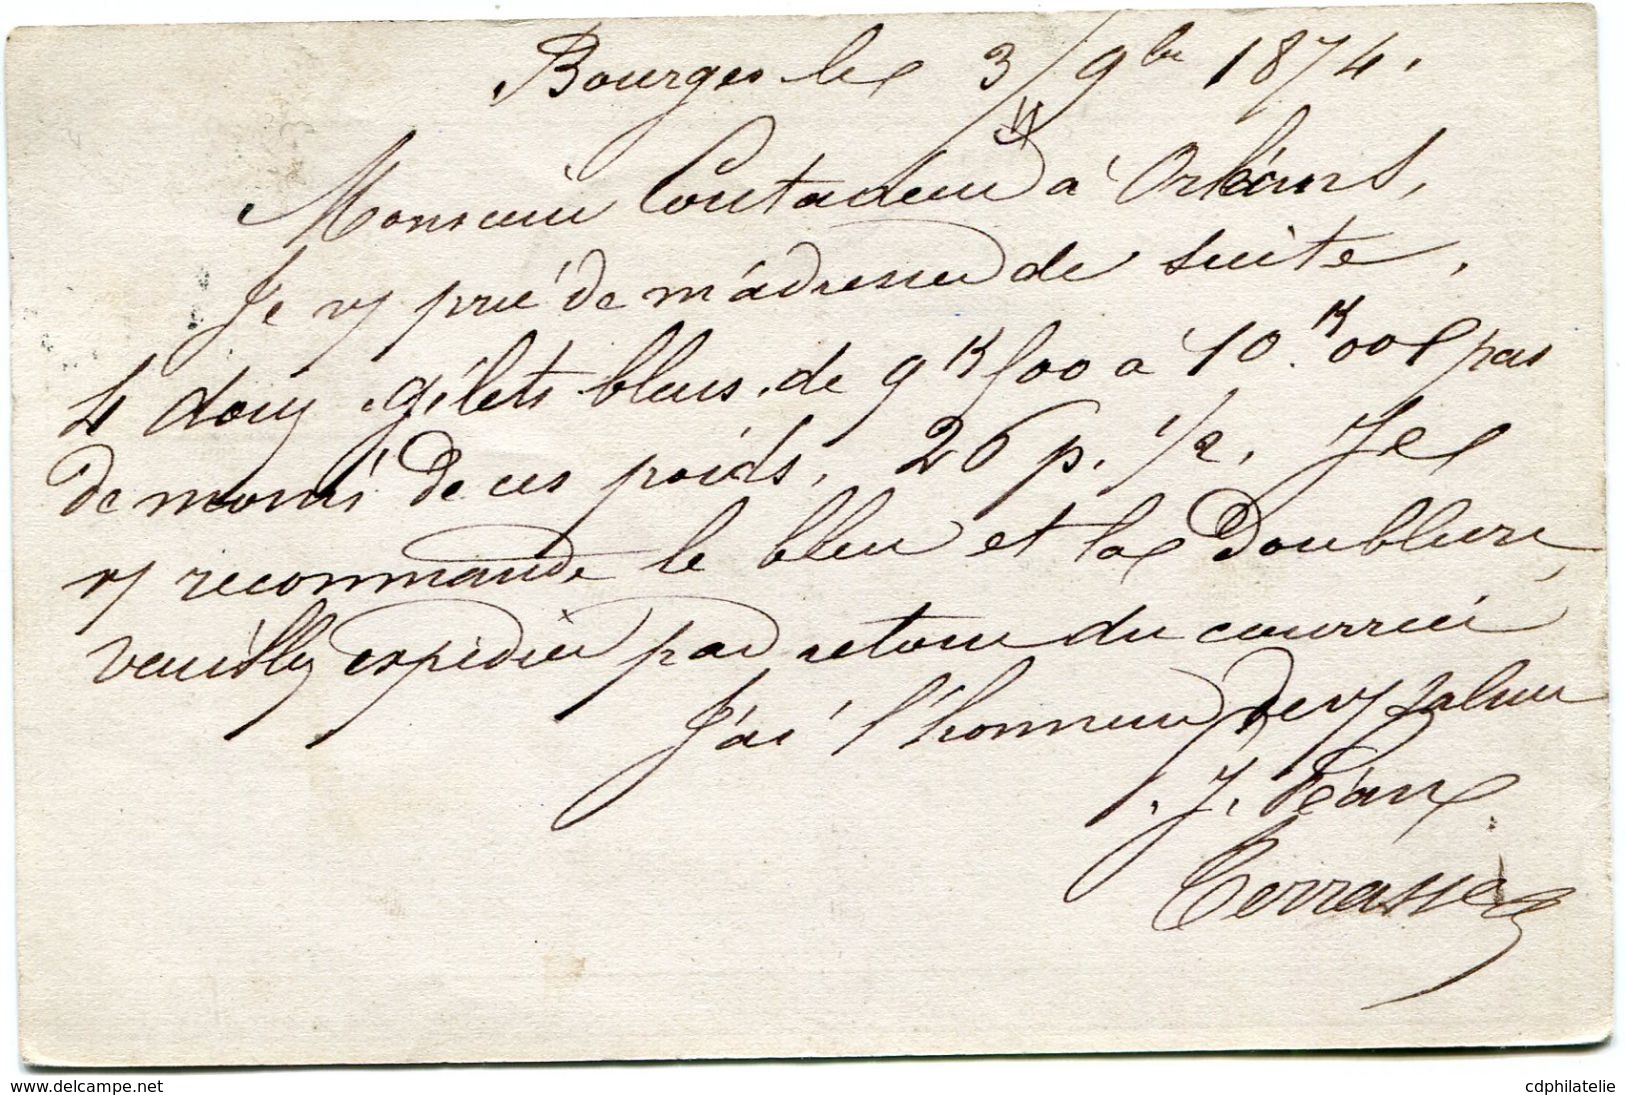 Bourges le 3/9bre 1874.
Monsieur Contadeur à Orléans,
Je vs prie de m'adresser de suite,
4 douz gilets bleus de 9k500 à 10.k000 pas
de moins de ces poids, 26 p. 1/2. Je
vs recommande le bleu et la Doublure,
veuillez expédier par retour du courrier
J'ai l'honneur de vs saluer
J. Péan
Terrasse
cdphilatelie